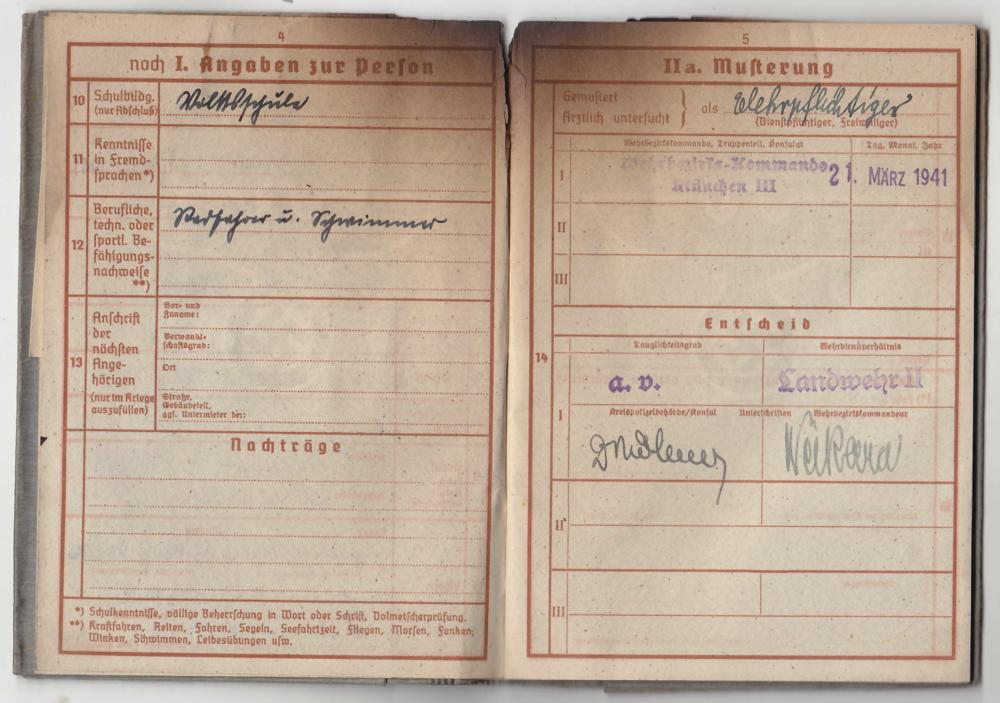 4
noch I. Angaben zur Person
10 Schulbildg. (nur Abschluß) Volksschule
11 Kenntnisse in Fremd-
sprachen*)
12 Berufliche, techn. oder sportl. Be-
fähigungs-
nachweise **)
Radfahrer u. Schwimmer
13 Anschrift der nächsten Ange-
hörigen
(nur im Kriege auszufüllen)
Vor- und Zuname:
Verwandt-
schaftsgrad:
Ort
Straße, Gebäudeteil, ggf. Untermieter bei:
Nachträge
*) Schulkenntnisse, völlige Beherrschung in Wort oder Schrift, Dolmetscherprüfung.
**) Kraftfahren, Reiten, Fahren, Segeln, Seefahrtzeit, Fliegen, Morsen, Funken,
Winken, Schwimmen, Leibesübungen usw.
5
IIa. Musterung
Gemustert
Ärztlich untersucht } als Wehrpflichtiger
(Dienstpflichtiger, Freiwilliger)
Wehrbezirkskommando, Truppenteil, Konsulat Tag, Monat, Jahr
I Wehrbezirks-Kommando München III 21. MÄRZ 1941
II
III
14
Entscheid
Tauglichkeitsgrad Wehrdienstverhältnis
I a. v. Landwehr II
Kreispolizeibehörde/Konsul Unterschriften Wehrbezirkskommandeur
II
III